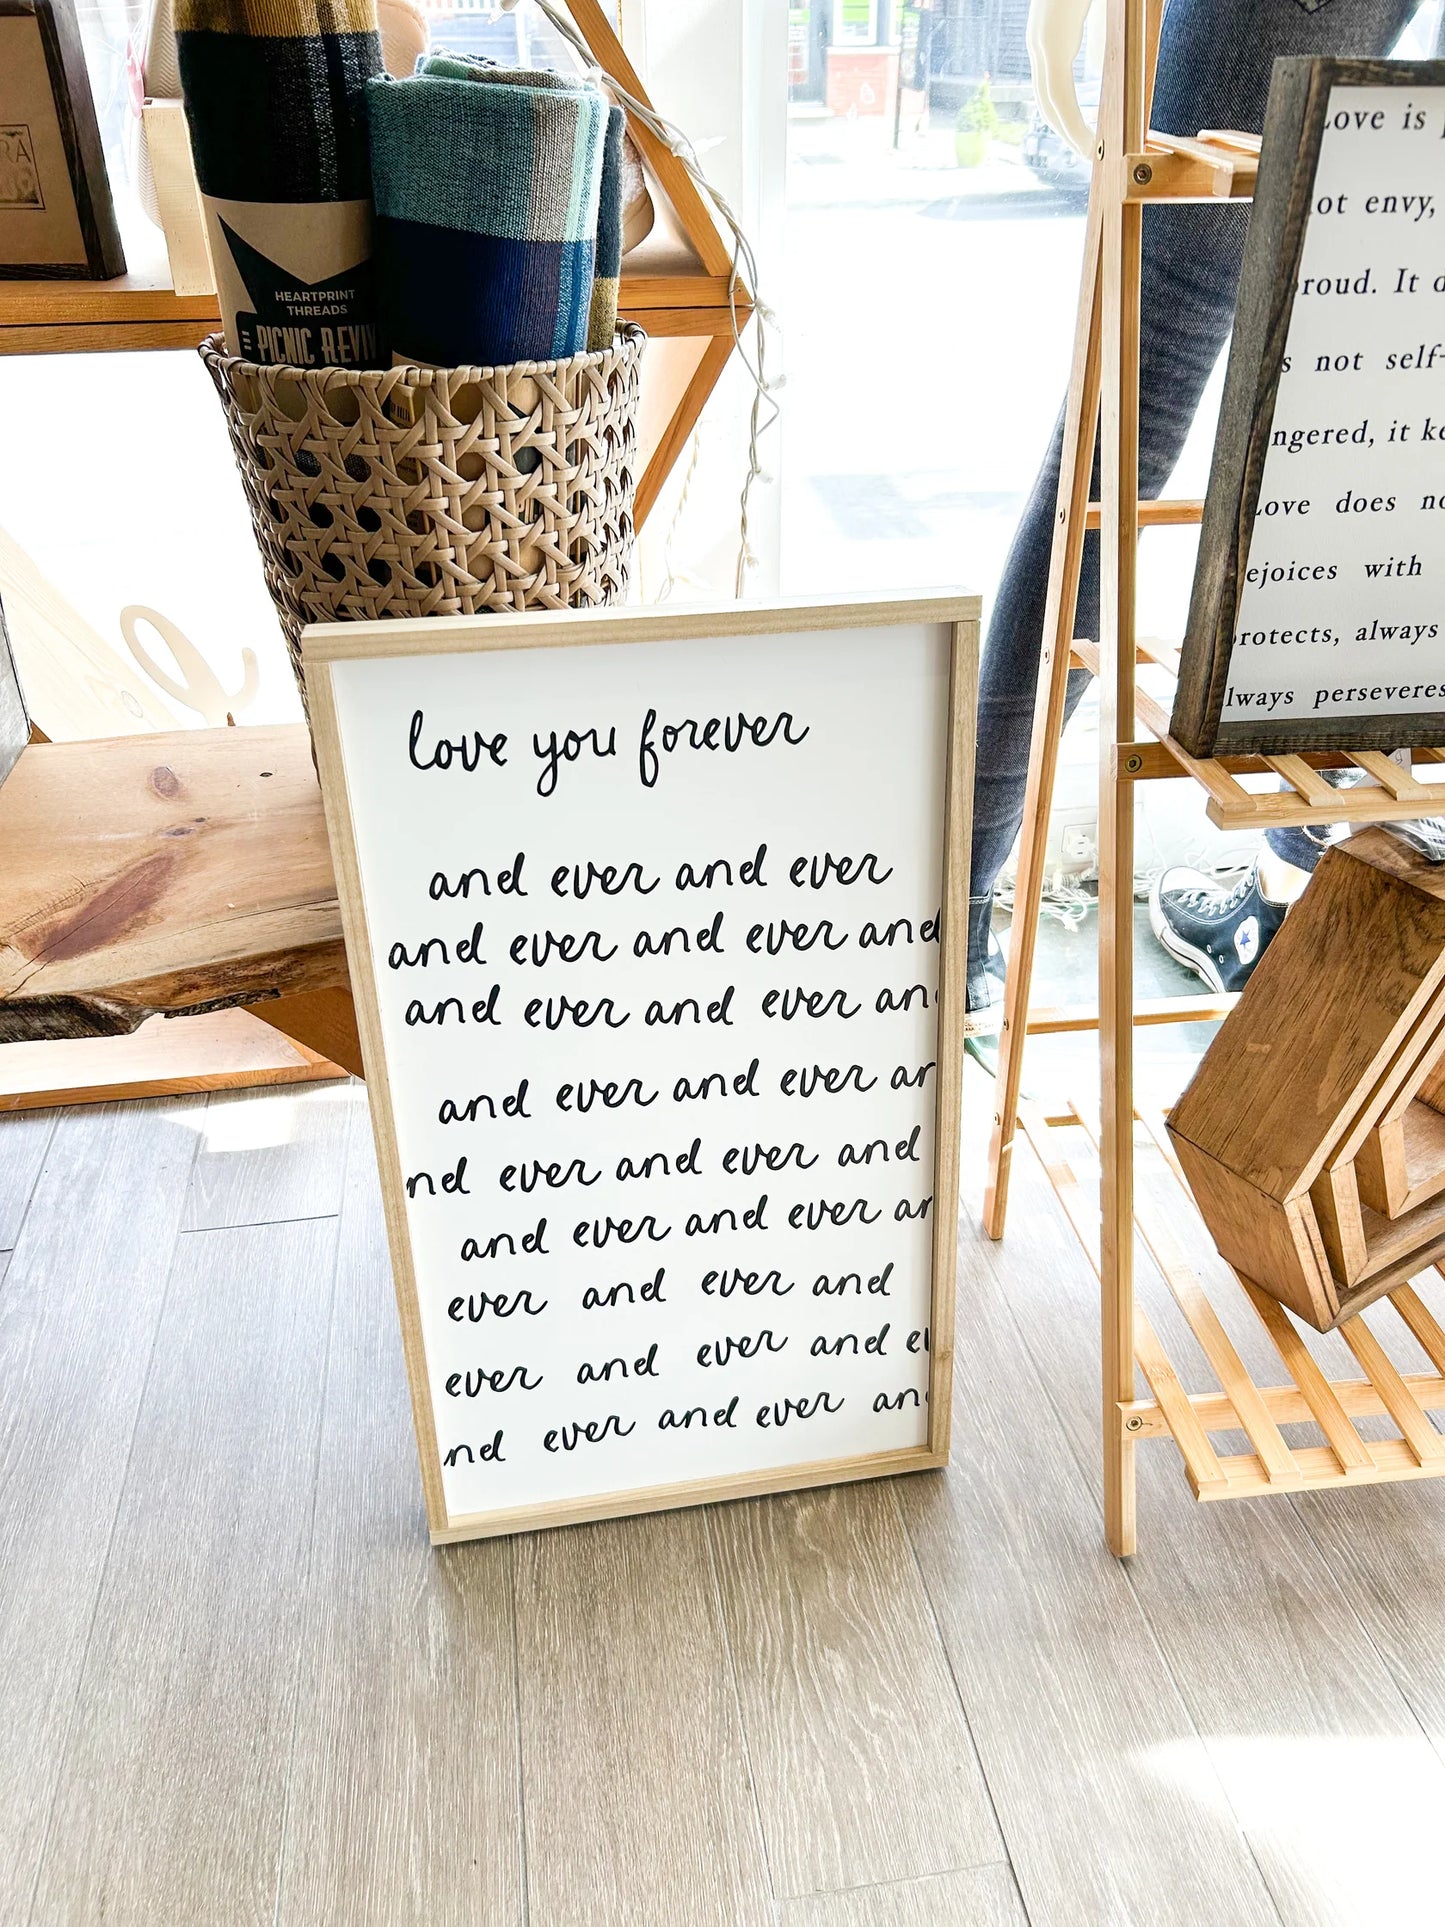 HEARTPRINT
THREADS
PICNIC REVIV
love you forever
and ever and ever
and ever and ever and
and ever and ever an
and ever and ever ar
nd ever and ever and
and ever and ever ar
ever and ever and
ever and ever and ev
nd ever and ever and
Love is
ot envy,
roud. It d
s not self-
ngered, it ke
Love does no
ejoices with
rotects, always
lways perseveres
RA